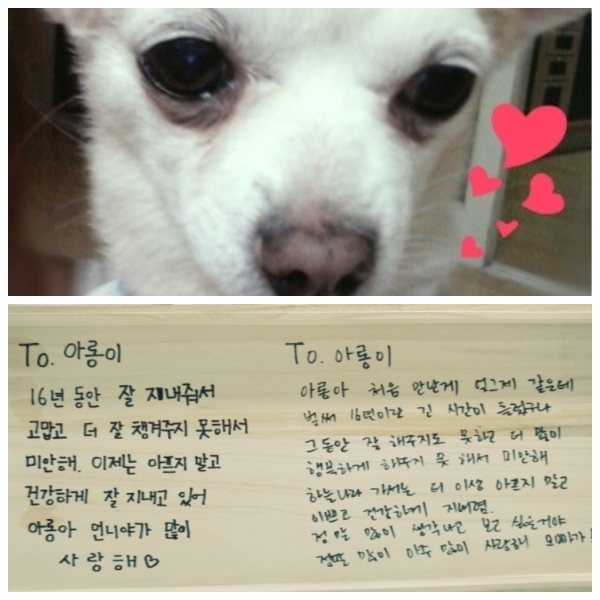 To. 아롱이
16년 동안 잘 지내줘서
고맙고 더 잘 챙겨주지 못해서
미안해. 이제는 아프지 말고
건강하게 잘 지내고 있어
아롱아 언니야가 많이
사랑해♡
To. 아롱이
아롱아 처음 만난게 엊그제 같은데
벌써 16년이란 긴 시간이 흘렀구나
그동안 잘 해주지도 못하고 더 많이
행복하게 해주지 못 해서 미안해
하늘나라 가서는 더 이상 아프지 말고
이쁘고 건강하게 지내렴.
정말 많이 생각나고 보고 싶을거야
정말 많이 아주 많이 사랑해